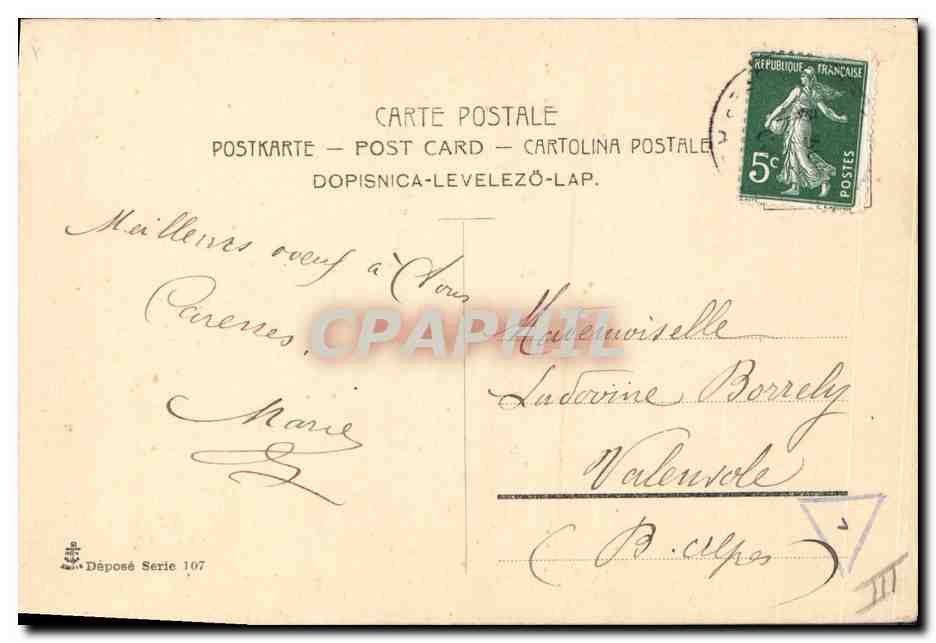 RÉPUBLIQUE FRANÇAISE
5c
POSTES
CARTE POSTALE
POSTKARTE – POST CARD – CARTOLINA POSTALE
DOPISNICA-LEVELEZÖ-LAP.
Meilleurs voeux à Vous
Caresses.
Marie
Mademoiselle
Ludovine Borrely
Valensole
(B. Alpes)
III
Déposé Serie 107
CPAPHIL